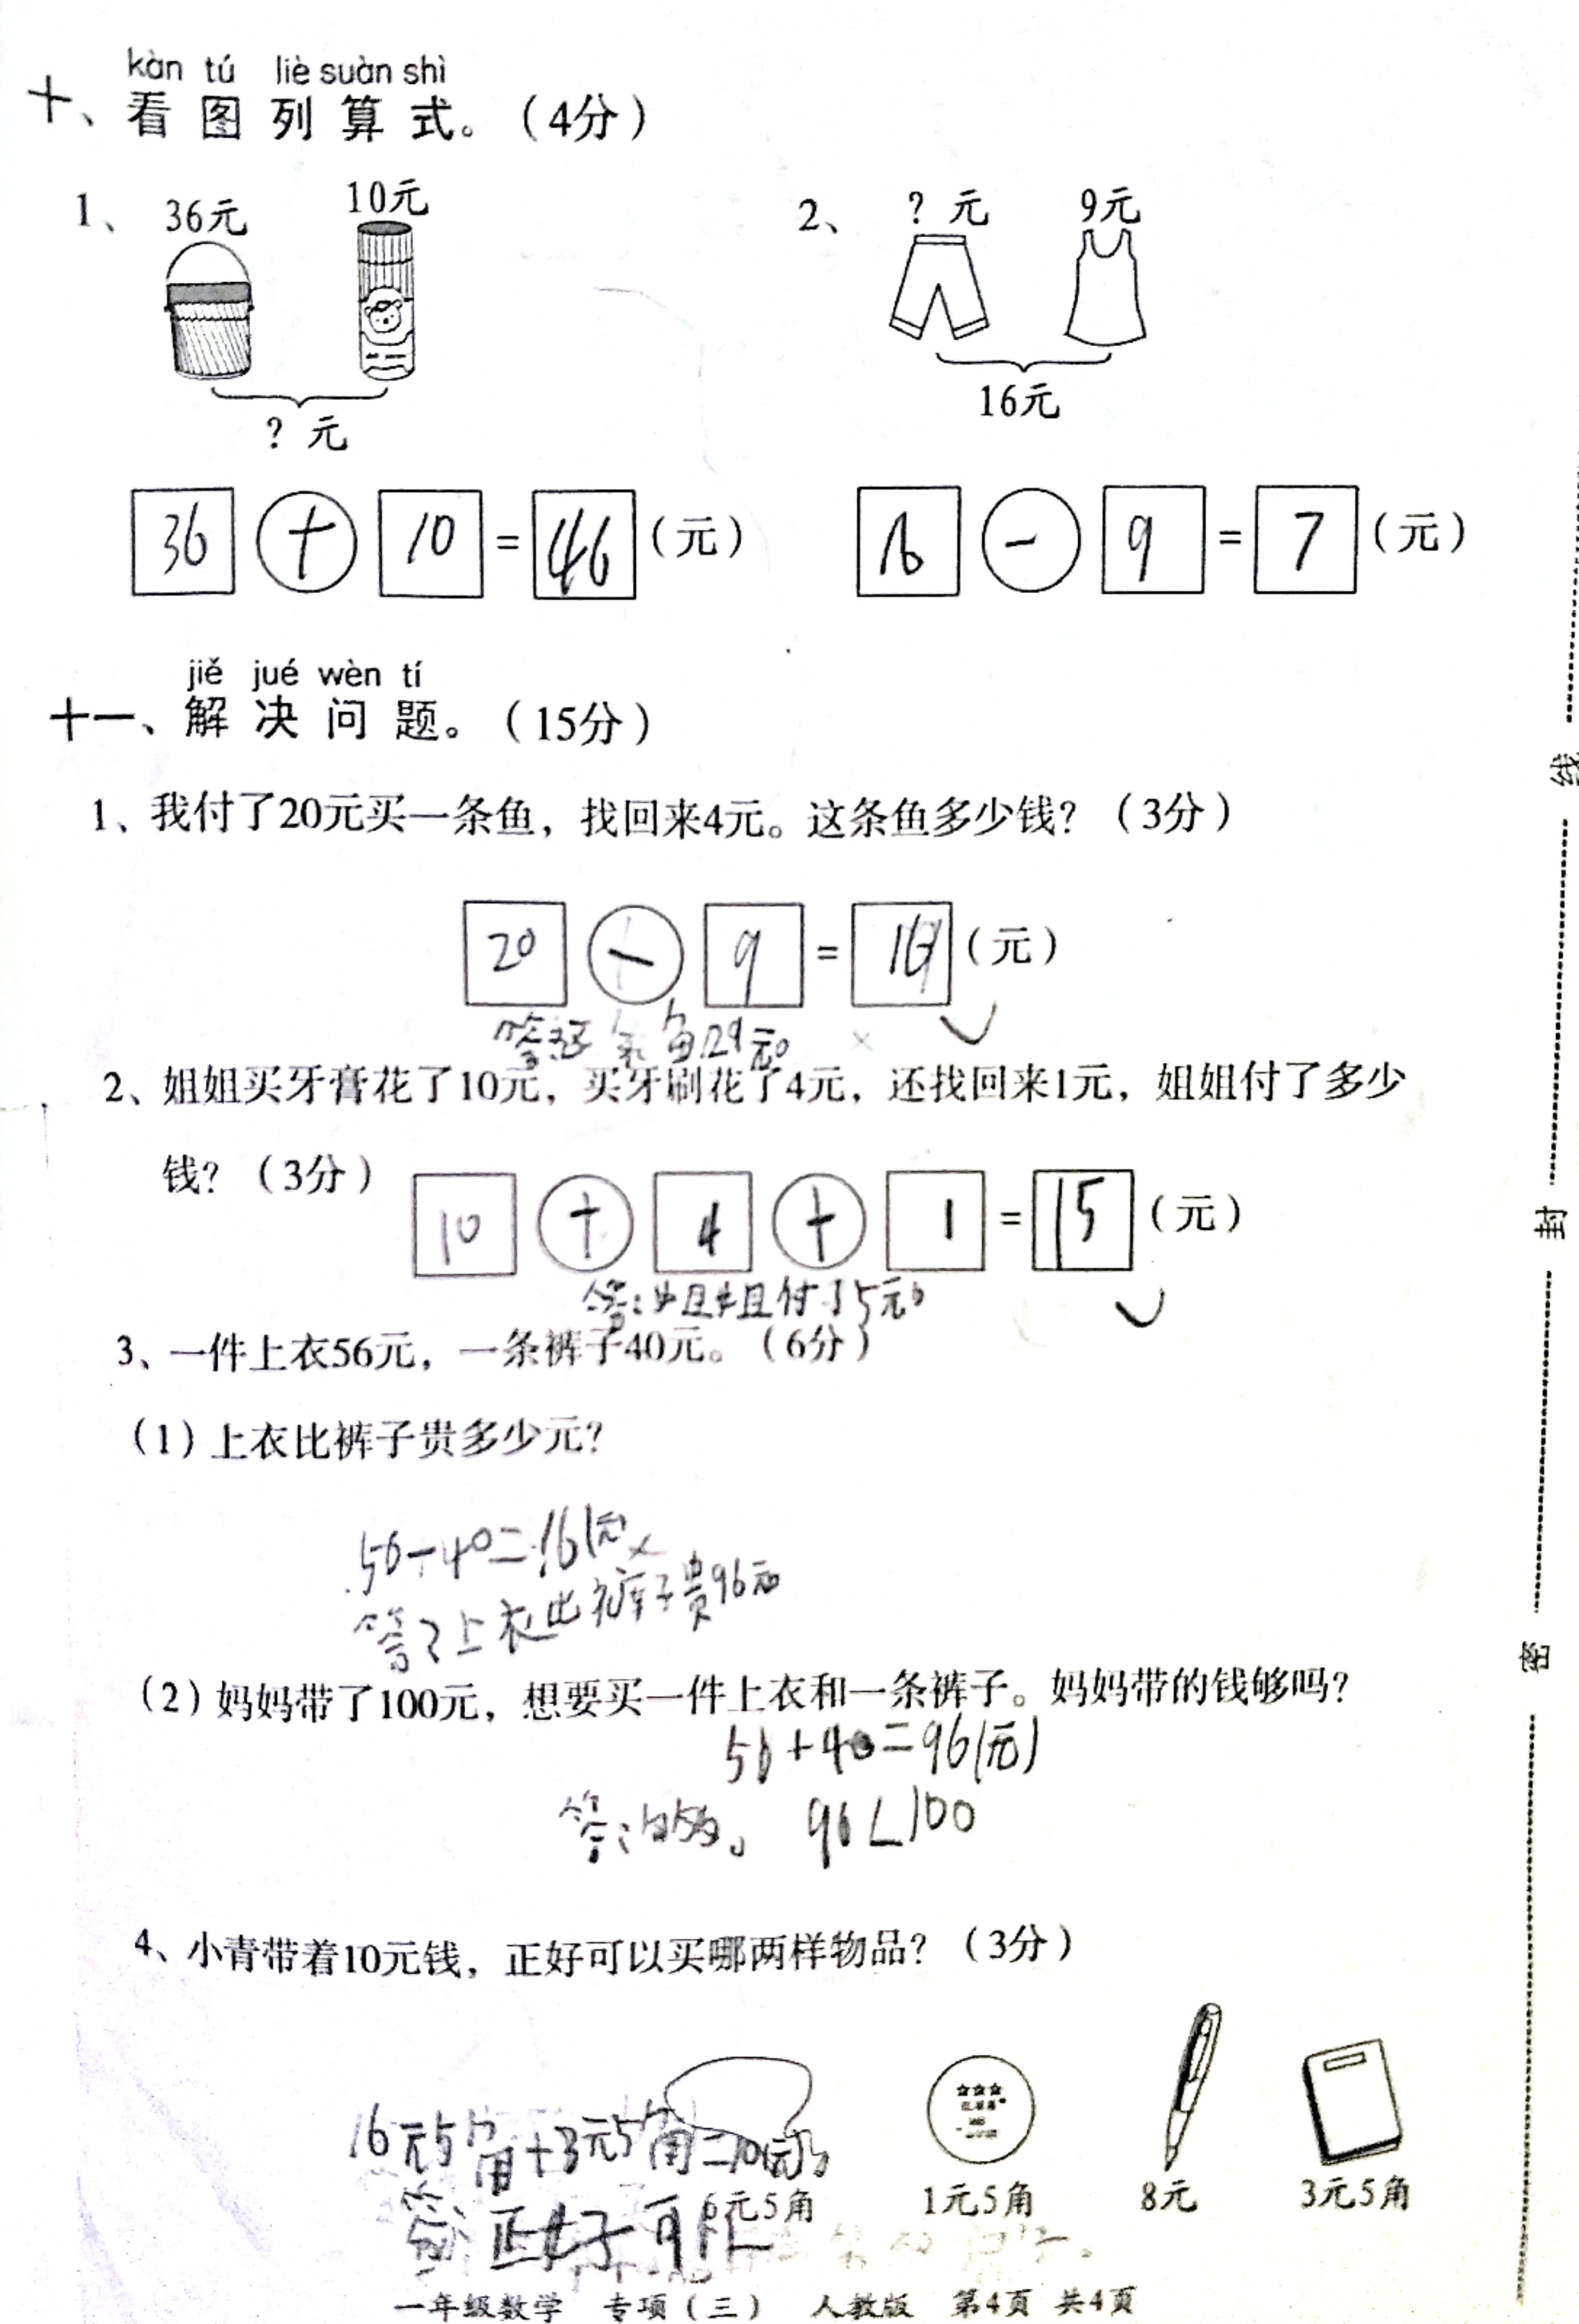 kàn tú liè suàn shì
十、看图列算式。（4分）
1、 36元 10元
? 元
2、 ? 元 9元
16元
36 + 10 = 46（元）
16 - 9 = 7（元）
jiě jué wèn tí
十一、解决问题。（15分）
1、我付了20元买一条鱼，找回来4元。这条鱼多少钱?（3分）
20 - 9 = （元）
2、姐姐买牙膏花了10元，买牙刷花了4元，还找回来1元，姐姐付了多少
钱?（3分）
10 + 4 + 1 = 15（元）
答:姐姐付了5元。
3、一件上衣56元，一条裤子40元。（6分）
(1)上衣比裤子贵多少元?
56-40=16(元)
答:上衣比裤子贵96元
(2)妈妈带了100元，想要买一件上衣和一条裤子。妈妈带的钱够吗?
56+40=96(元)
答:够。 96<100
4、小青带着10元钱，正好可以买哪两样物品?（3分）
元5角+3元5角=10(元)
6元5角 1元5角 8元 3元5角
答:正好可以
一年级数学 专项（三） 人教版 第4页 共4页
线
封
密